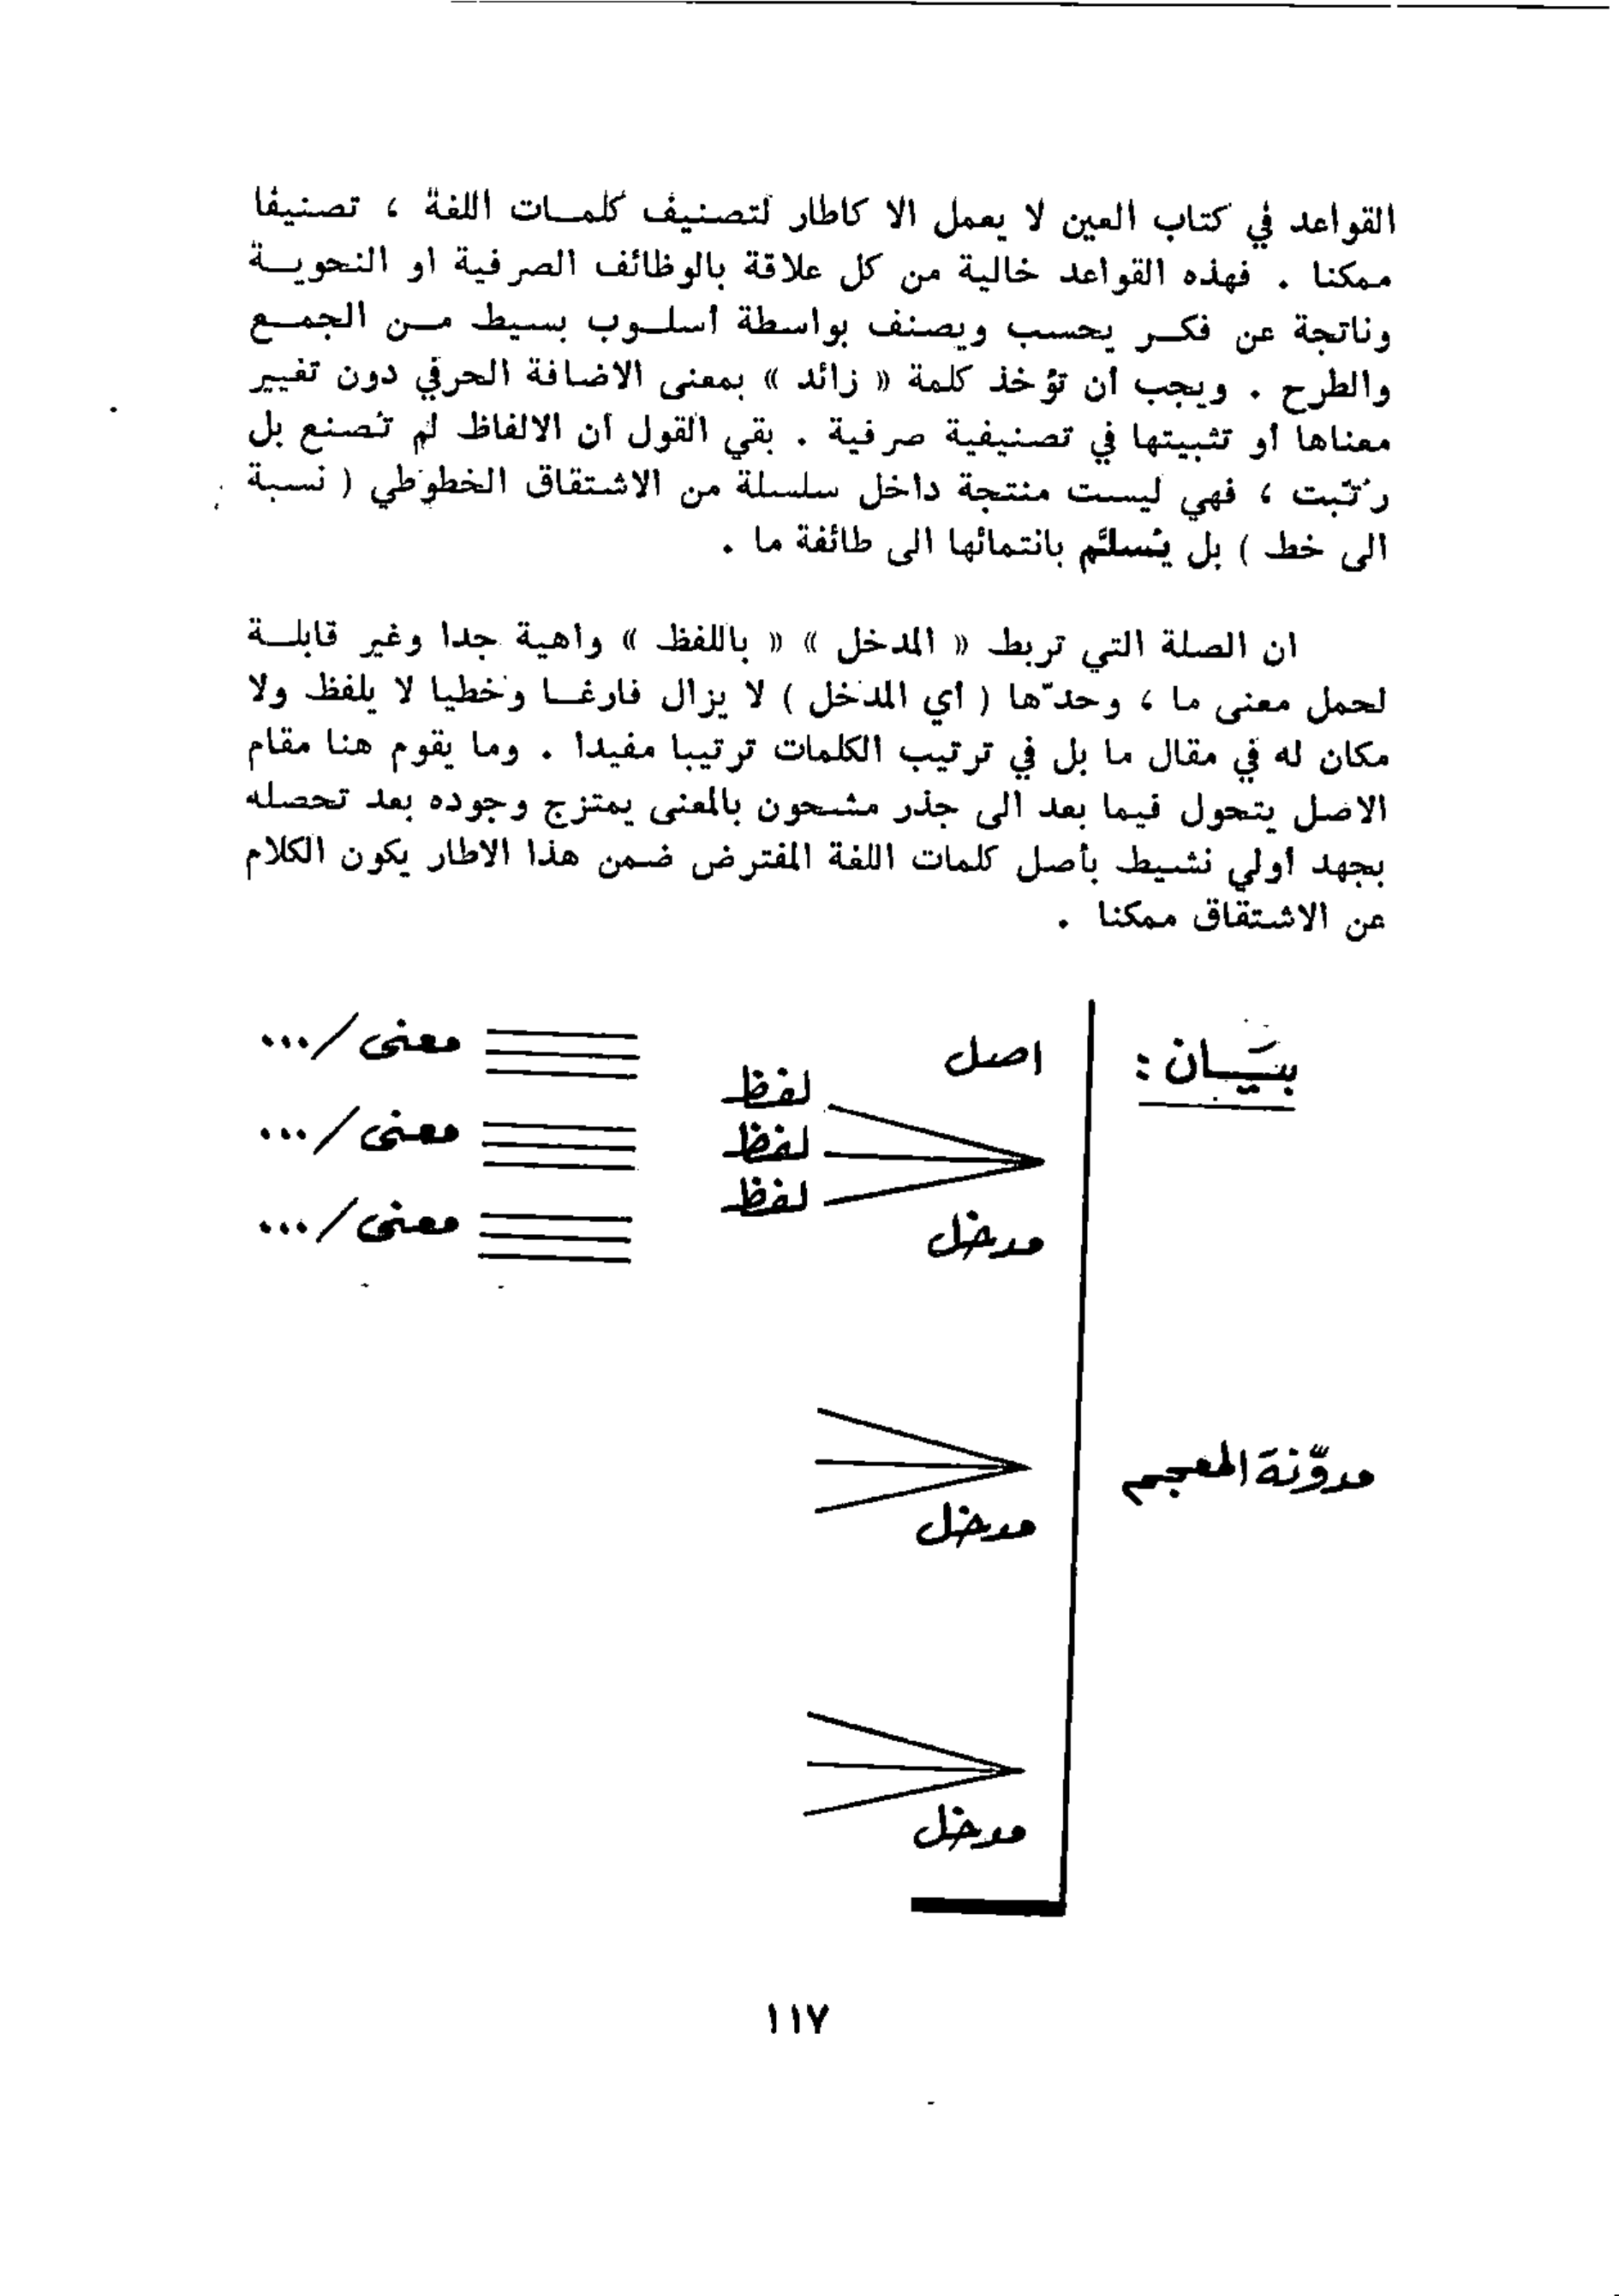 القواعد في كتاب العين لا يعمل الا كاطار لتصنيف كلمــات اللغة ، تصنيفا
ممكنا . فهذه القواعد خالية من كل علاقة بالوظائف الصرفية او النحويــة
وناتجة عن فكــر يحسب ويصنف بواسطة أسلــوب بسيط مــن الجمــع
والطرح . ويجب أن تؤخذ كلمة « زائد » بمعنى الاضافة الحرفي دون تغيير
معناها أو تثبيتها في تصنيفية صرفية . بقي القول أن الالفاظ لم تُصنع بل
رُتّبت ، فهي ليست منتجة داخل سلسلة من الاشتقاق الخطوطي ( نسبة
الى خط ) بل يُسلَّم بانتمائها الى طائفة ما .
ان الصلة التي تربط « المدخل » « باللفظ » واهية جدا وغير قابلــة
لحمل معنى ما ، وحدّها ( أي المدخل ) لا يزال فارغــا وخطيا لا يلفظ ولا
مكان له في مقال ما بل في ترتيب الكلمات ترتيبا مفيدا . وما يقوم هنا مقام
الاصل يتحول فيما بعد الى جذر مشحون بالمعنى يمتزج وجوده بعد تحصله
بجهد أولي نشيط بأصل كلمات اللغة المفترض ضمن هذا الاطار يكون الكلام
عن الاشتقاق ممكنا .
بيَــان :
اصل
لفظ
معنى /...
لفظ
معنى /...
لفظ
معنى /...
مدخل
مدوّنة المعجم
مدخل
مدخل
١١٧